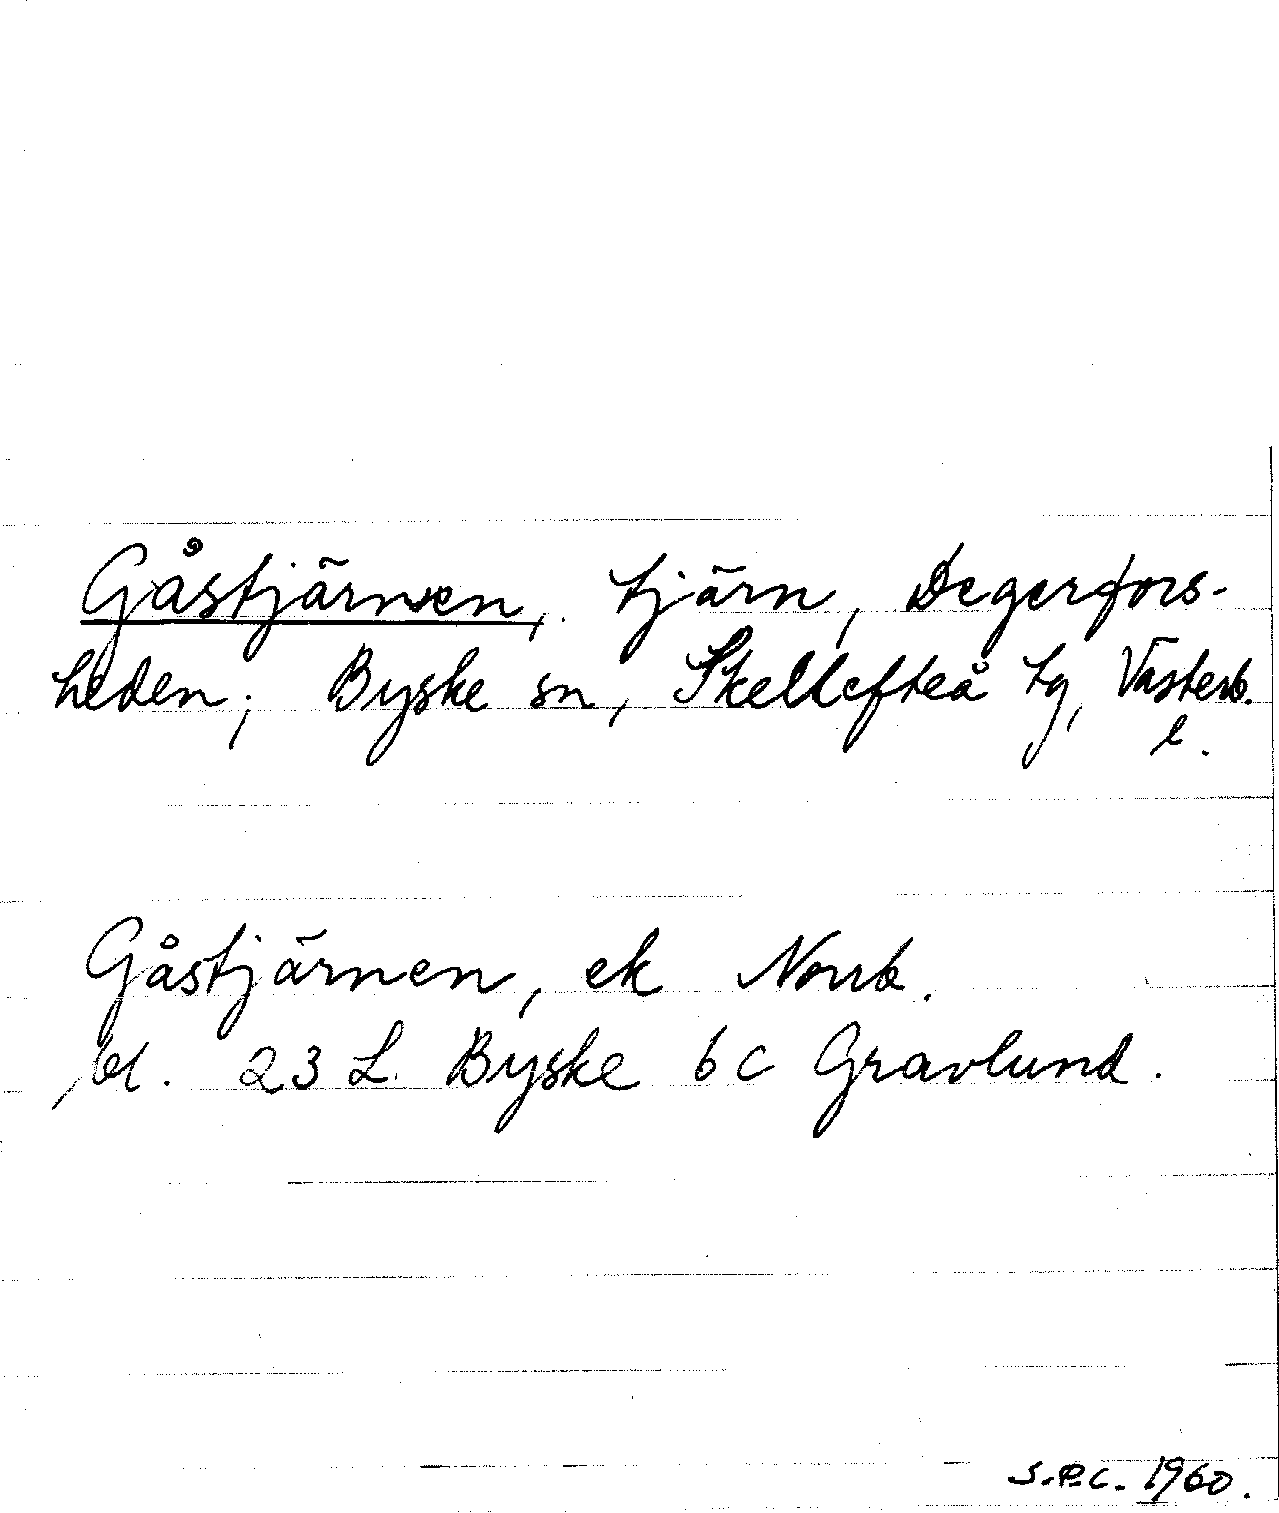 Gåstjärnen, tjärn, Degerfors-
heden; Byske sn, Skellefteå tg, Västerb.
l.
Gåstjärnen, ek Norrb.
bl. 23 L. Byske 6 c Gravlund.
S.P.C. 1960.